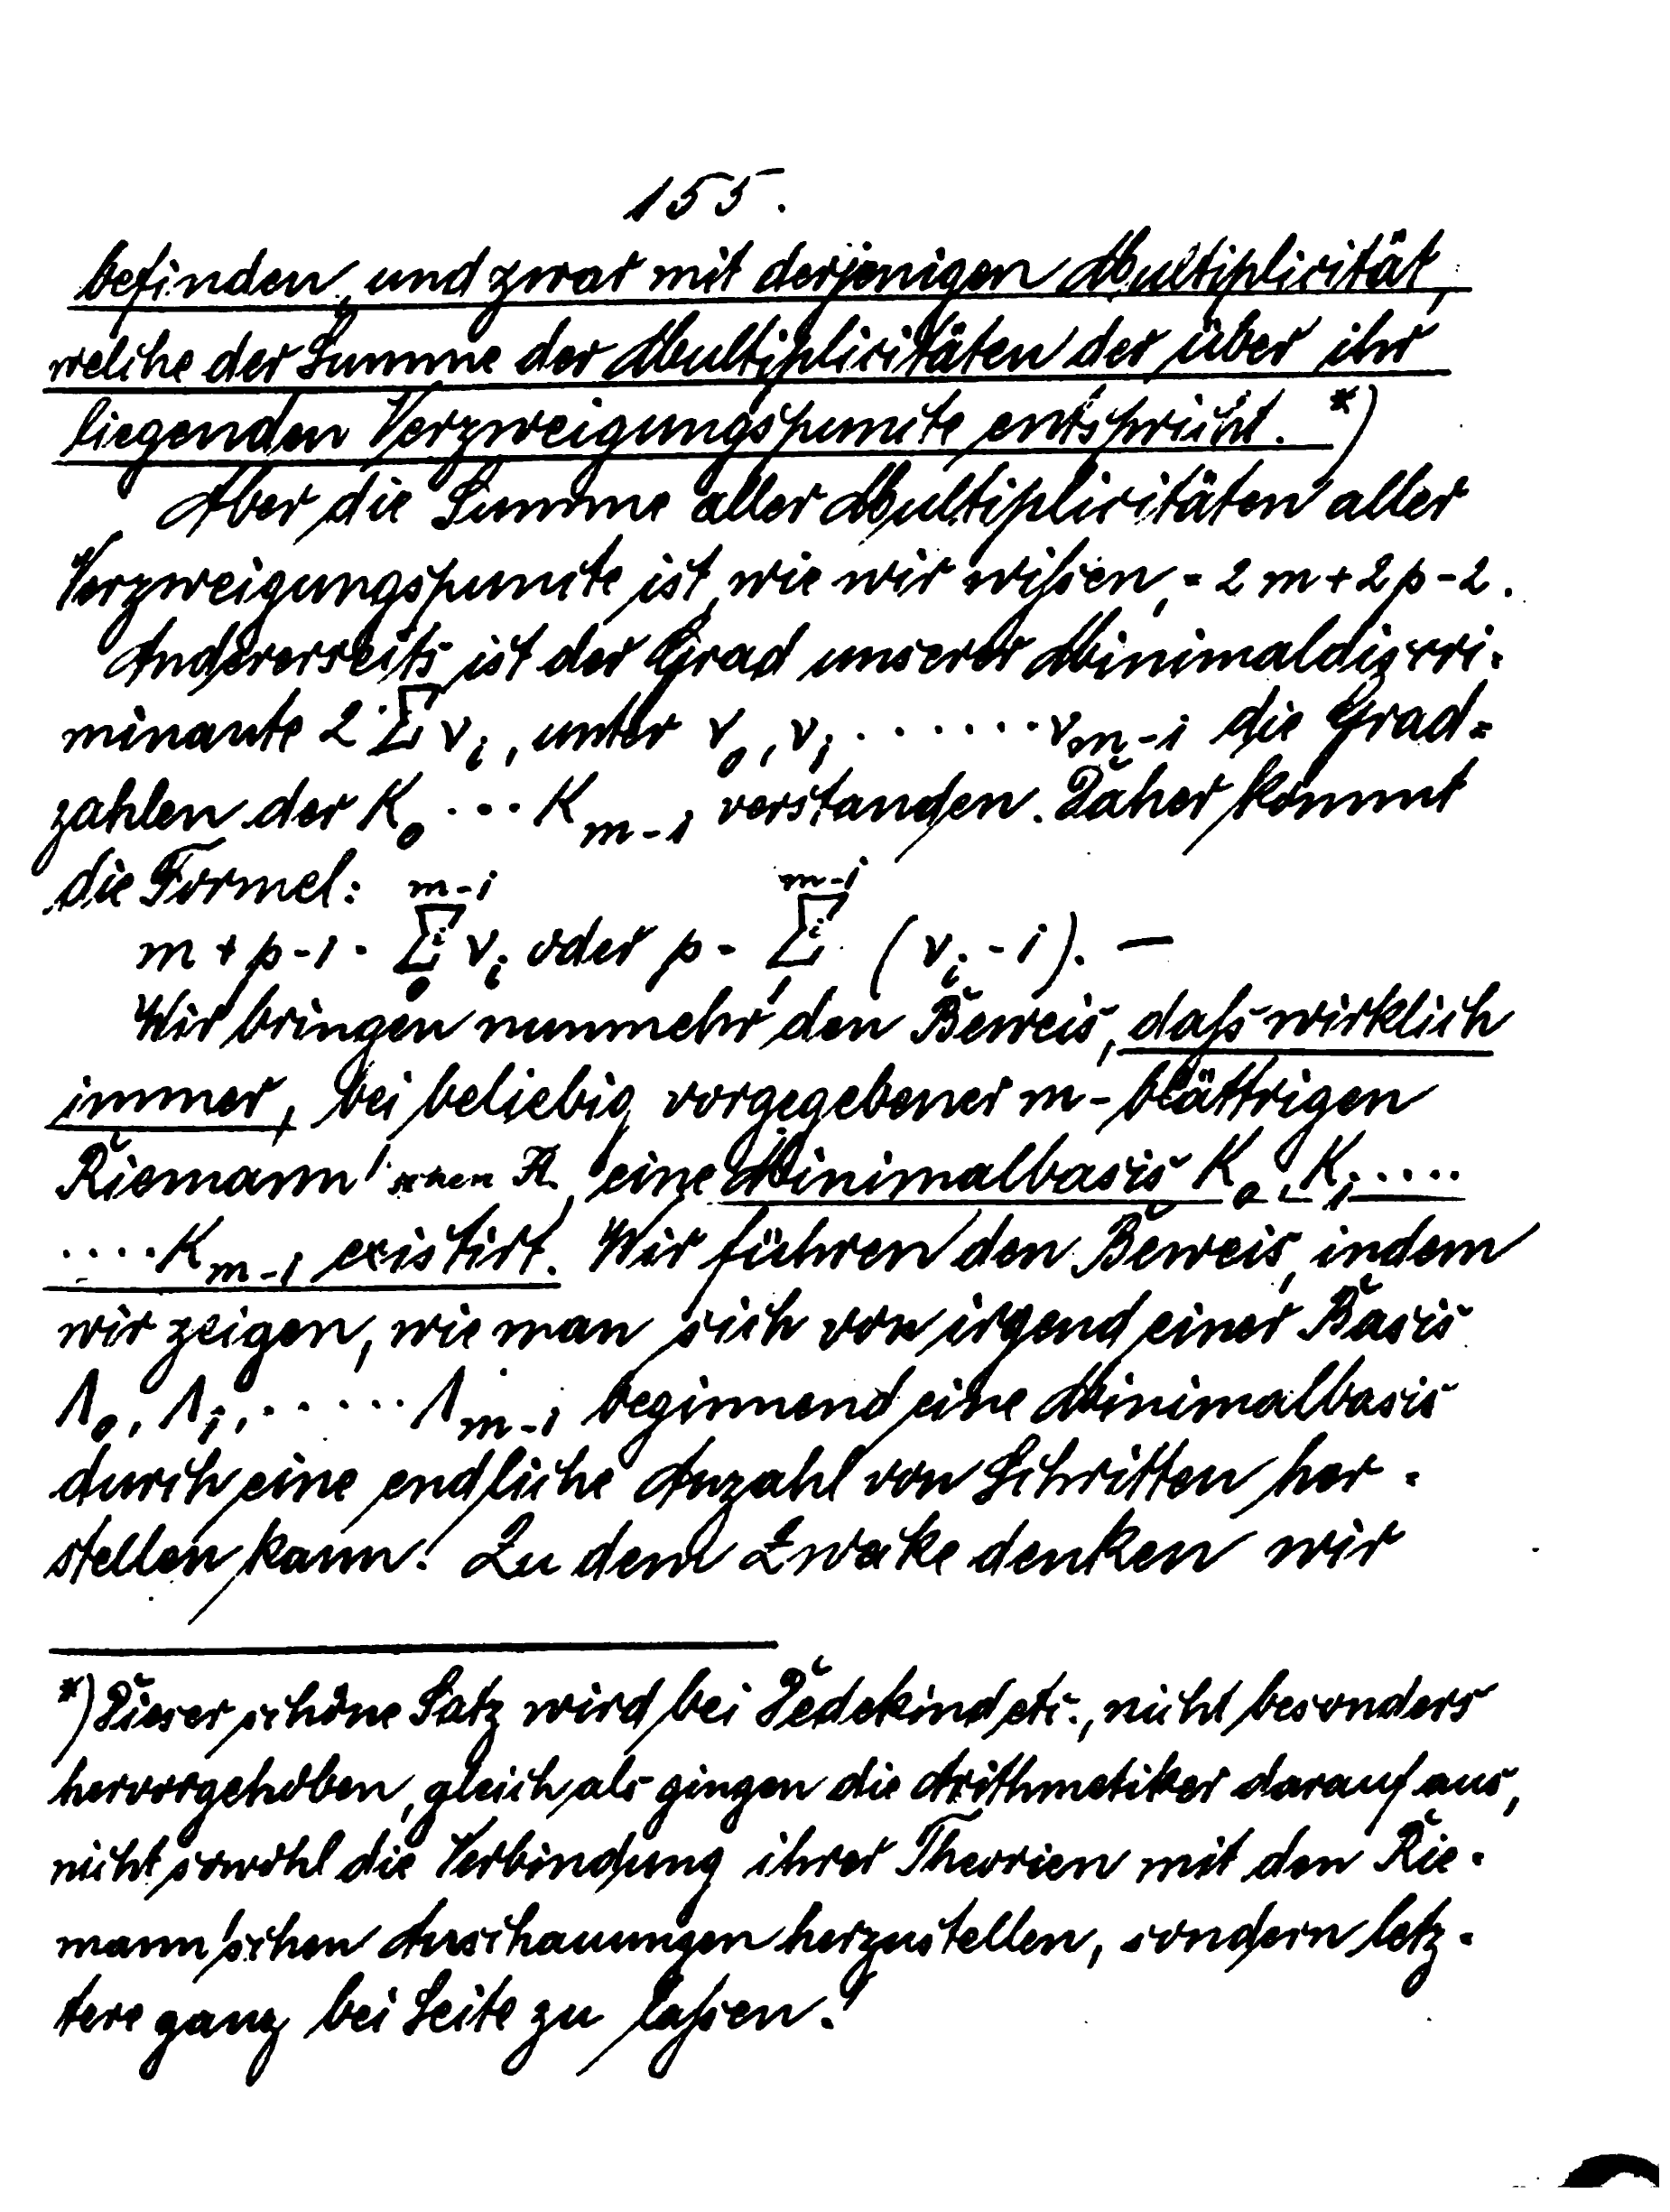 155.
befinden, und zwar mit derjenigen Multiplicität,
welche der Summe der Multiplicitäten der über ihr
liegenden Verzweigungspuncte entspricht. *)
Aber die Summe aller Multiplicitäten aller
Verzweigungspuncte ist, wie wir wissen, = 2m+2p-2.
Andererseits ist der Grad unserer Minimaldiscri-
minante 2 Σ ν_i, unter ν_0, ν_1 ....... ν_{m-1} die Grad-
zahlen der K_0 ... K_{m-1} verstanden. Daher kommt
die Formel:
m + p - 1 = Σ_0^{m-1} ν_i oder p = Σ_1^{m-1} (ν_i - 1). —
Wir bringen nunmehr den Beweis, daß wirklich
immer, bei beliebig vorgegebener m-blättrigen
Riemann'schen Fl. eine Minimalbasis K_0, K_1 .....
.... K_{m-1} existirt. Wir führen den Beweis, indem
wir zeigen, wie man sich von irgend einer Basis
Λ_0, Λ_1, ..... Λ_{m-1} beginnend eine Minimalbasis
durch eine endliche Anzahl von Schritten her-
stellen kann. Zu dem Zwecke denken wir
*) Dieser schöne Satz wird bei Dedekind etc., nicht besonders
hervorgehoben, gleich als gingen die Arithmetiker darauf aus,
nicht sowohl die Verbindung ihrer Theorien mit den Rie-
mann'schen Anschauungen herzustellen, sondern letz-
tere ganz bei Seite zu lassen!